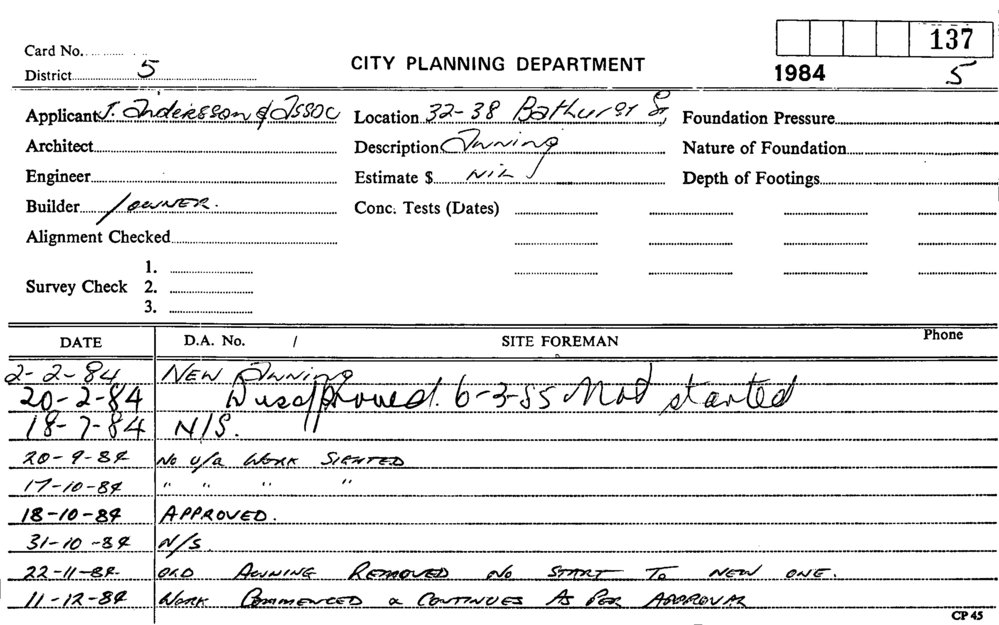 137
Card No.
District 5
CITY PLANNING DEPARTMENT
1984 5
Applicant J. Andersson & Assoc Location 32-38 Bathurst St, Foundation Pressure
Architect Description Awning Nature of Foundation
Engineer Estimate $ NIL Depth of Footings
Builder / OWNER. Conc. Tests (Dates)
Alignment Checked
1.
Survey Check 2.
3.
DATE D.A. No. / SITE FOREMAN Phone
2-2-84 NEW Awning
20-2-84 Disapproved. 6-3-85 Not started
18-7-84 N/S.
20-9-84 NO U/A WORK SIGHTED
17-10-84 " " " "
18-10-84 APPROVED.
31-10-84 N/S.
22-11-84 OLD AWNING REMOVED NO START TO NEW ONE.
11-12-84 WORK COMMENCED & CONTINUES AS PER APPROVAL
CP 45